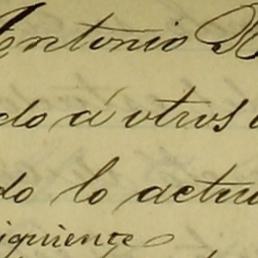 Antonio
do á otros
do lo actu
siguiente